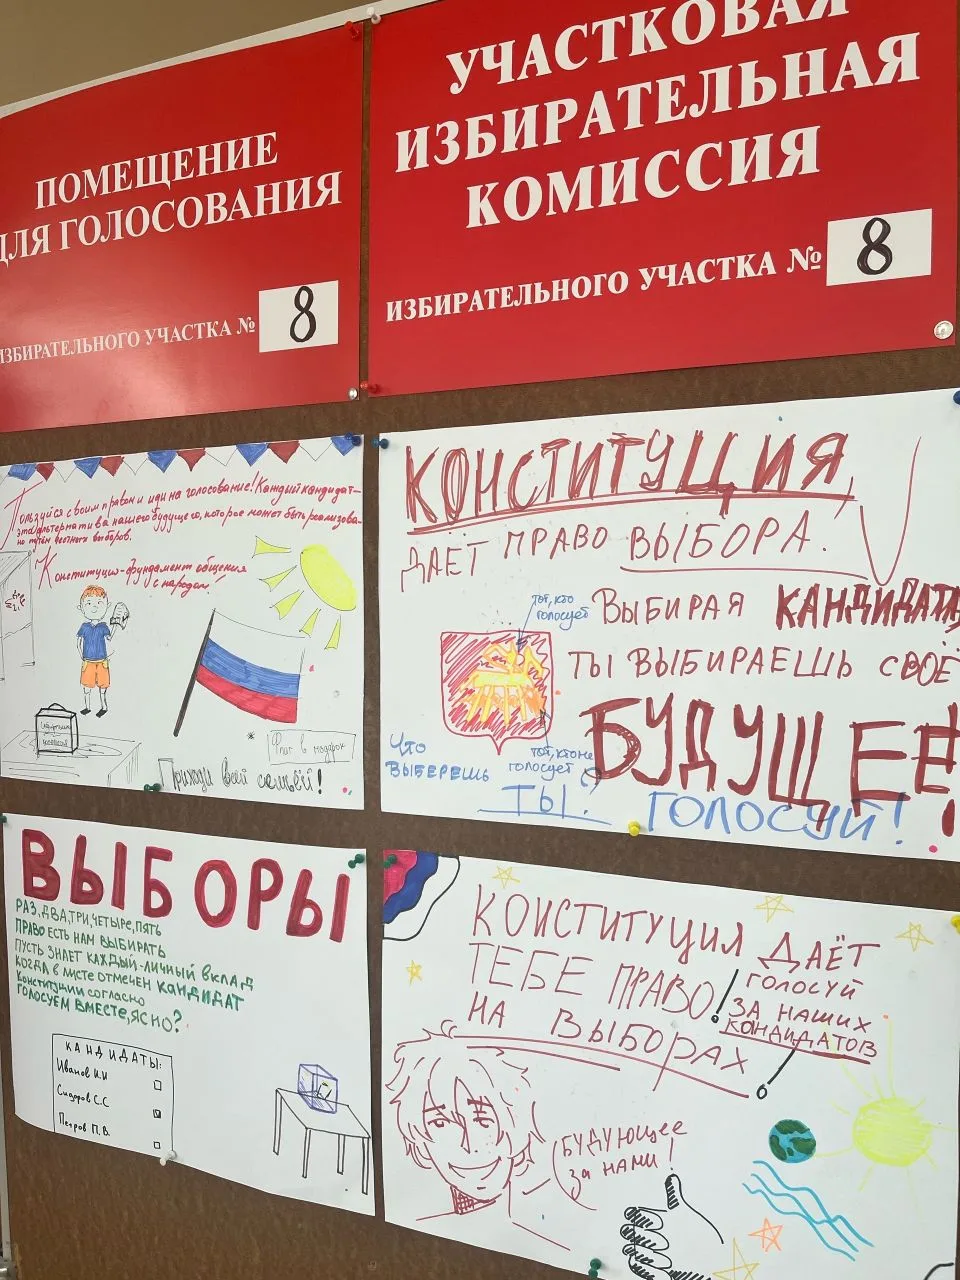 ПОМЕЩЕНИЕ
ДЛЯ ГОЛОСОВАНИЯ
ИЗБИРАТЕЛЬНОГО УЧАСТКА № 8
УЧАСТКОВАЯ
ИЗБИРАТЕЛЬНАЯ
КОМИССИЯ
ИЗБИРАТЕЛЬНОГО УЧАСТКА № 8
Пользуйся своим правом и иди на голосование! Каждый кандидат-
это альтернатива нашего будущего, которое может быть реализова-
но путём честных выборов.
Конституция-фундамент общения
с народом!
комиссия
* Флаг в подарок
Приходи всей семьёй!
КОНСТИТУЦИЯ,
ДАЁТ ПРАВО ВЫБОРА.
ВЫБИРАЯ КАНДИДАТА,
ТЫ ВЫБИРАЕШЬ СВОЁ
БУДУЩЕЕ!
тот, кто
голосует
тот, кто не
голосует
ЧТО
ВЫБЕРЕШЬ
ТЫ?
ГОЛОСУЙ!
ВЫБОРЫ
РАЗ, ДВА, ТРИ, ЧЕТЫРЕ, ПЯТЬ
ПРАВО ЕСТЬ НАМ ВЫБИРАТЬ
ПУСТЬ ЗНАЕТ КАЖДЫЙ-ЛИЧНЫЙ ВКЛАД
КОГДА В ЛИСТЕ ОТМЕЧЕН КАНДИДАТ
Конституции согласно
ГОЛОСУЕМ ВМЕСТЕ, ЯСНО?
КАНДИДАТЫ:
Иванов И.И
Сидоров С.С
Петров П.В.
КОНСТИТУЦИЯ ДАЁТ
ТЕБЕ ПРАВО
НА ВЫБОРАХ
ГОЛОСУЙ
ЗА НАШИХ
КАНДИДАТОВ
БУДУЮЩЕЕ
за НАМИ!